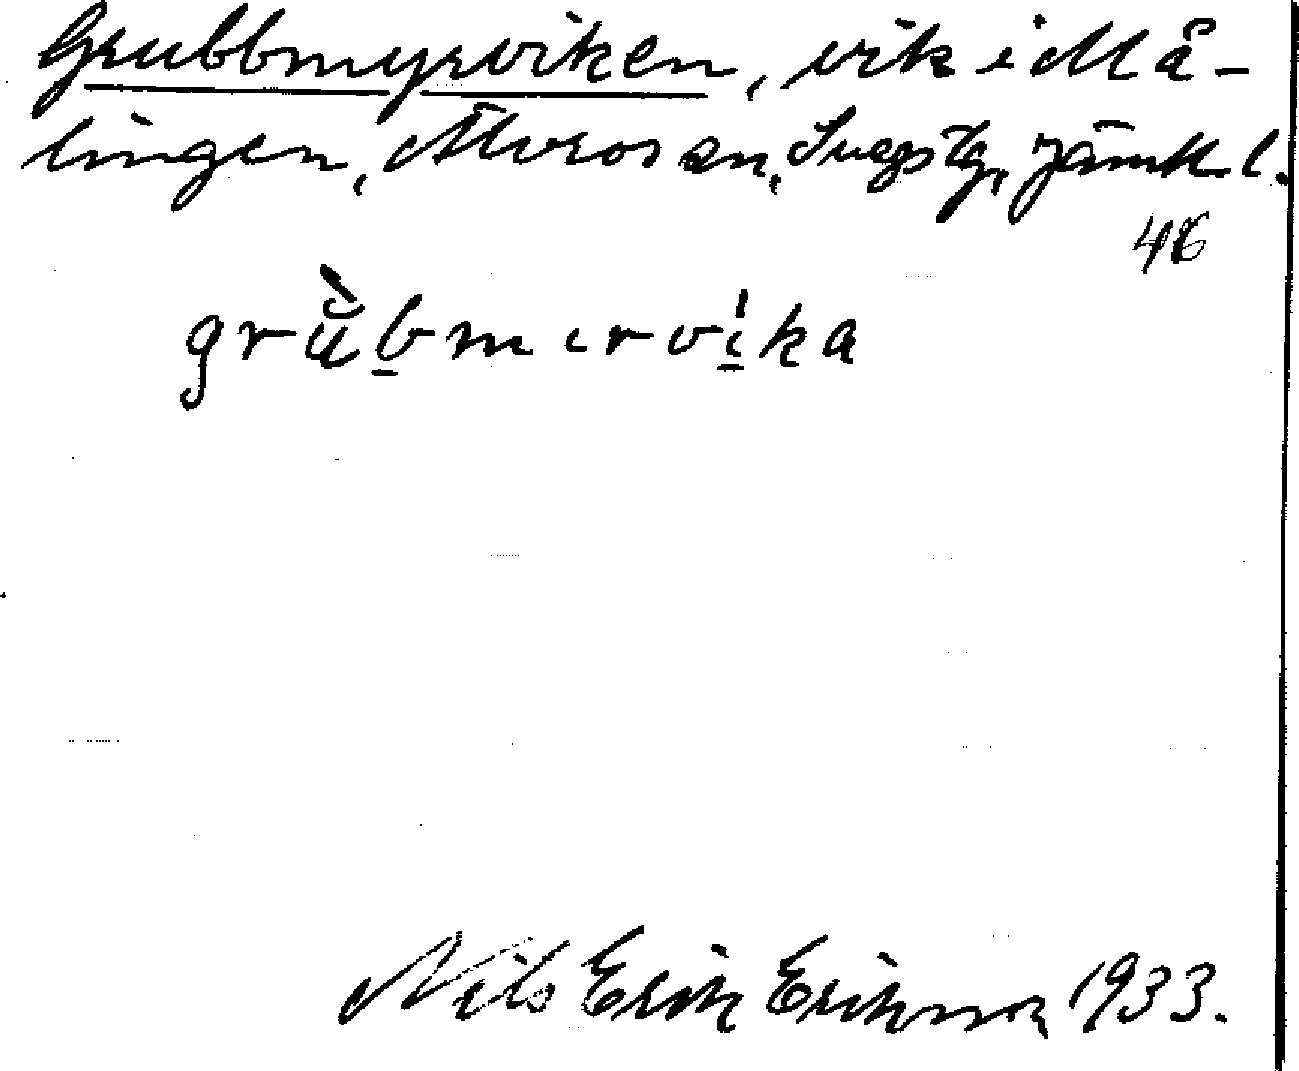 Grubbmyrviken, vik i Må-
lingen, Älvros sn, Svegs tg, Jämtl. l.
46
grŭ̀bmırvı́ka
Nils Erik Eriksson 1933.